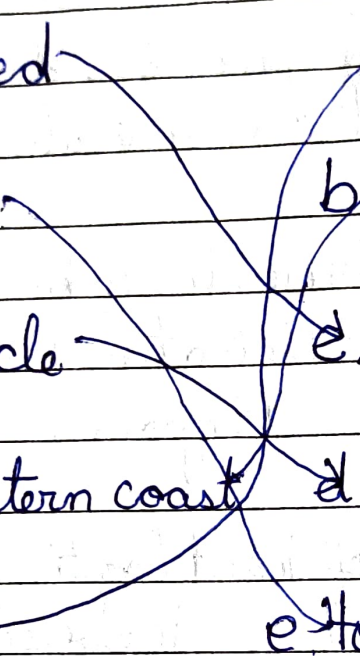 ed
b
cle
e.
tern coast
d
e